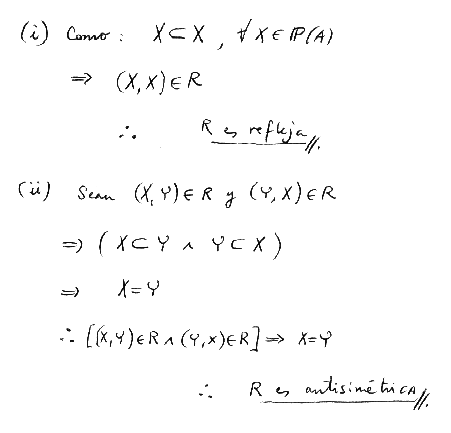 (i) Como : X ⊂ X , ∀ X ∈ P(A)
⇒ (X, X) ∈ R
∴ R es refleja //.
(ii) Sean (X, Y) ∈ R y (Y, X) ∈ R
⇒ ( X ⊂ Y ∧ Y ⊂ X )
⇒ X = Y
∴ [(X, Y) ∈ R ∧ (Y, X) ∈ R] ⇒ X = Y
∴ R es antisimétrica //.